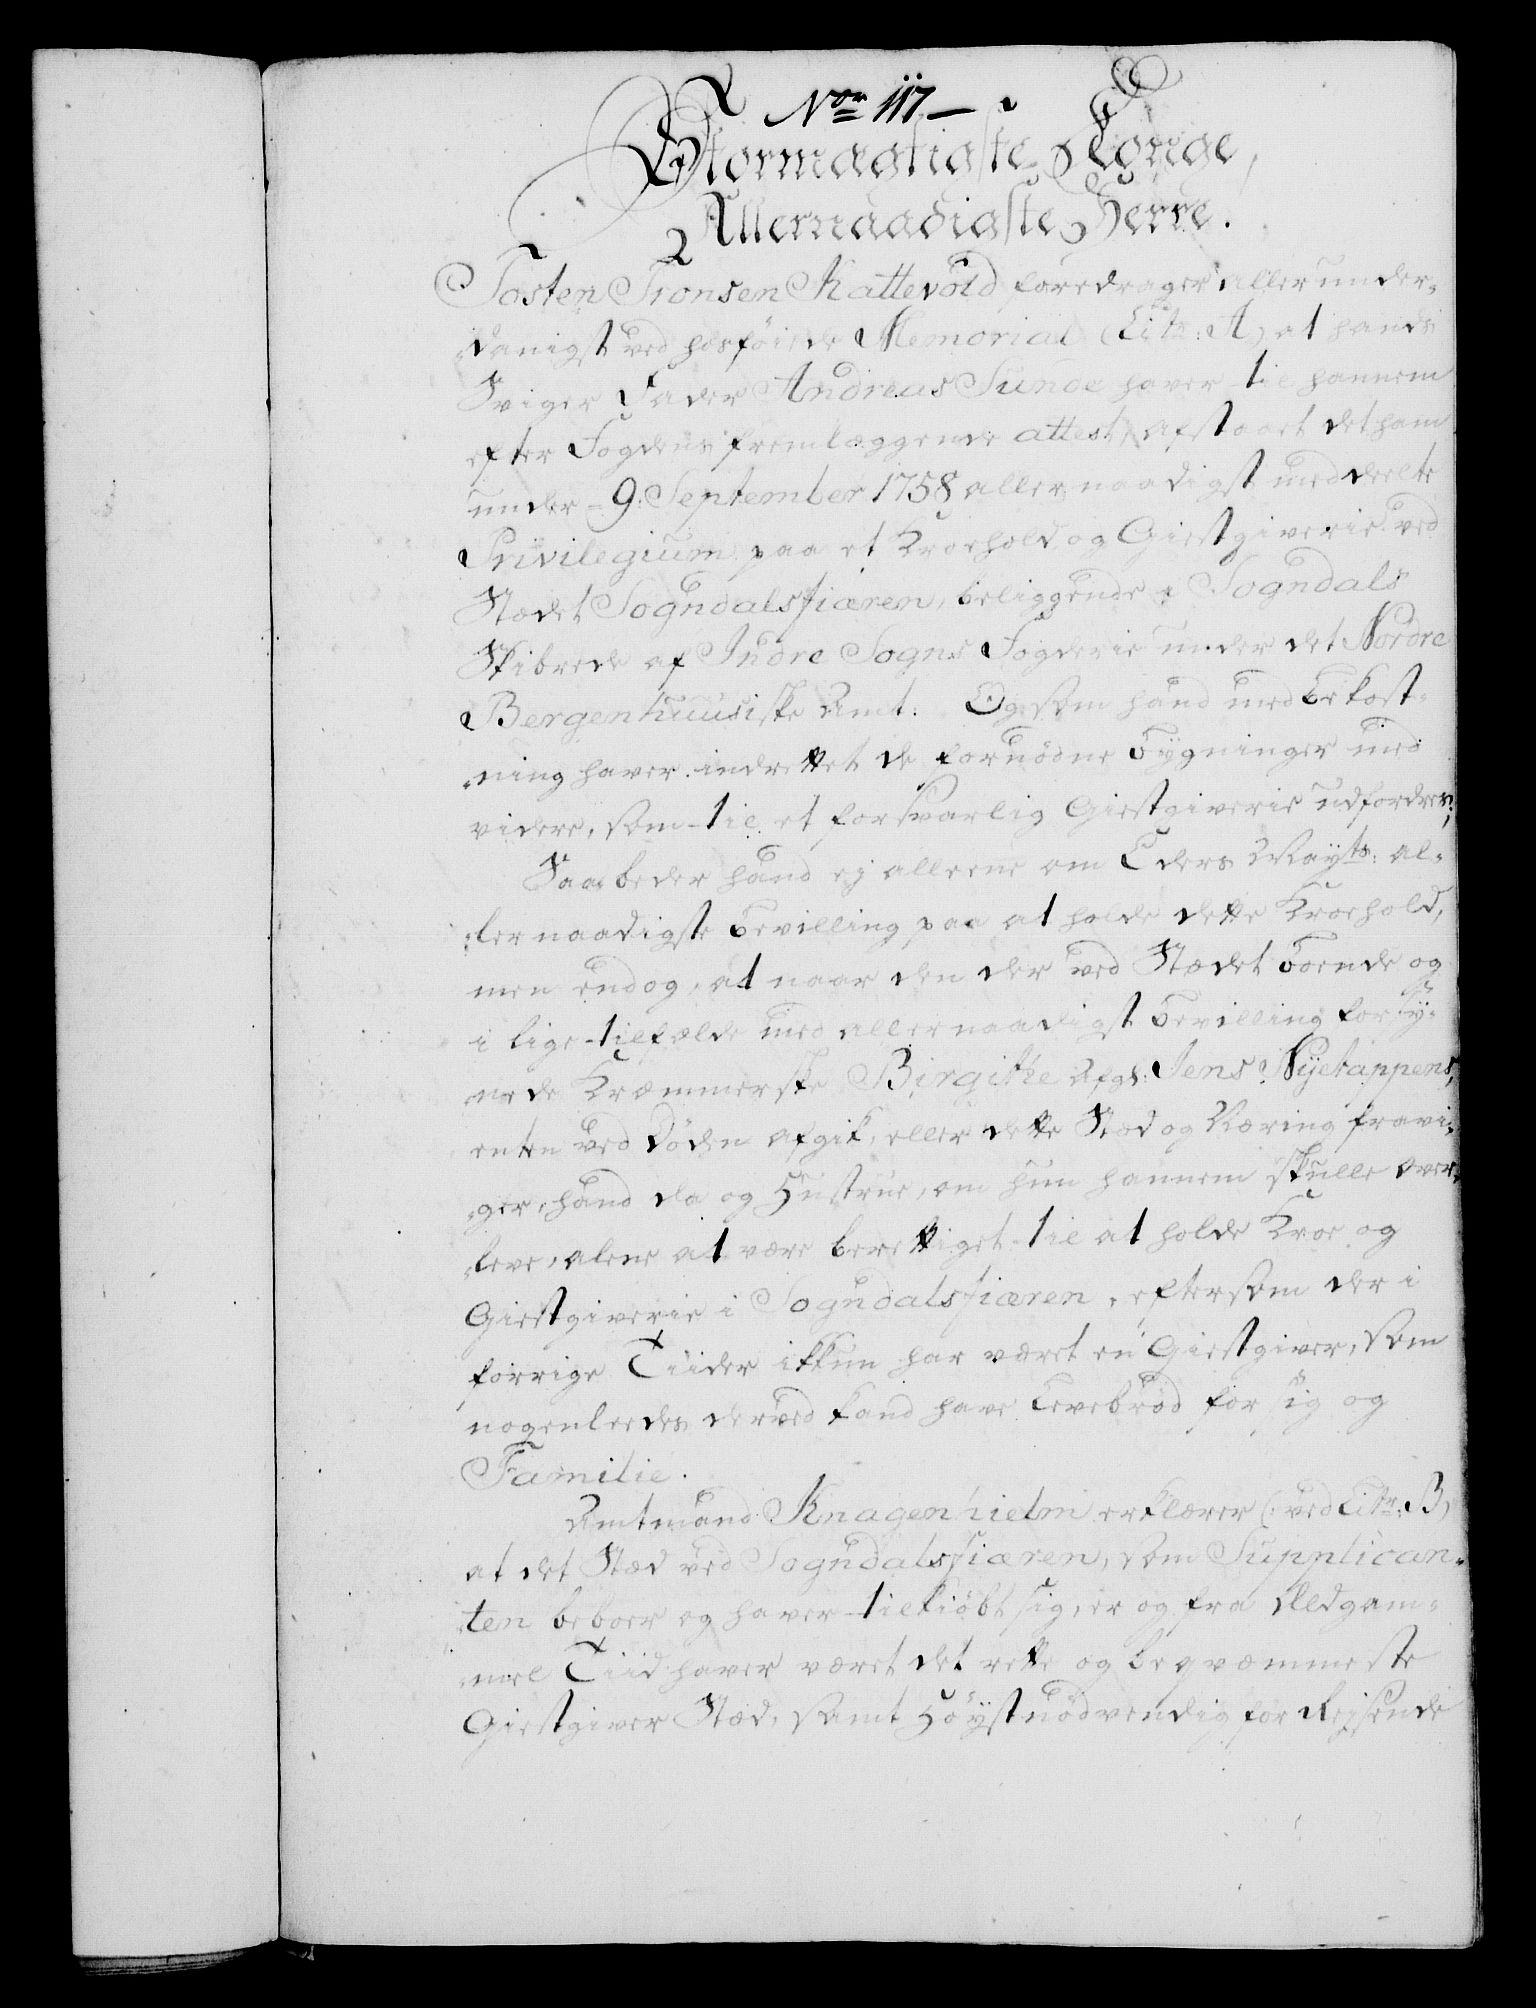 Non 117
Stormægtigste Konge,
Allernaadigste Herre.
Tosten Tronsen Kattevold foredrager allerunder-
danigst ved hosføiede Memorial (Litr: A) at hands
Sviger Fader Andreas Sunde haver til hannem
efter Fogdens fremlæggende attest, afstaaet det ham
under 9. September 1758 allernaadigst meddeelte
Privilegium paa et Kroehold og Giestgiverie ved
Stædet Sogndalsfiæren, beliggende i Sogndals
Skibrede af Indre Sogns Fogderie under det Nordre
Bergenhuusiske Amt. Og som hand med Bekost-
ning haver indrettet de fornødne Bygninger med
videre, som til et forsvarlig Giestgiverie udfordres;
Saa beder hand ej alleene om Eders Mayts: al-
lernaadigste Bevilling paa at holde dette Kroehold,
men endog, at naar den der ved Stædet boende og
i lige tilfælde med allernaadigst Bevilling forsy-
nede Kræmmerske Birgithe Afgl: Jens Nyetappens,
enten ved Døden afgik, eller dette Stæd og Næring fravi-
ger, hand da og Hustrue, om hun hannem skulle over-
leve, alene at være berettiget til at holde Kroe og
Giestgiverie i Sogndalsfiæren, eftersom der i
forrige Tiider ikkun har været en Giestgiver, som
nogenleedes derved kand have Levebrød for sig og
Familie.
Amtmand Knagenhielm erklærer (: ved Litr: B,
at det Stæd ved Sogndalsfiæren, som Supplican-
ten beboer og haver tilkiøbt sig, er og fra Ældgam-
mel Tiid haver været det rette og beqvæmmeste
Giestgiver Stæd, samt Høystnødvendig for Rejsende